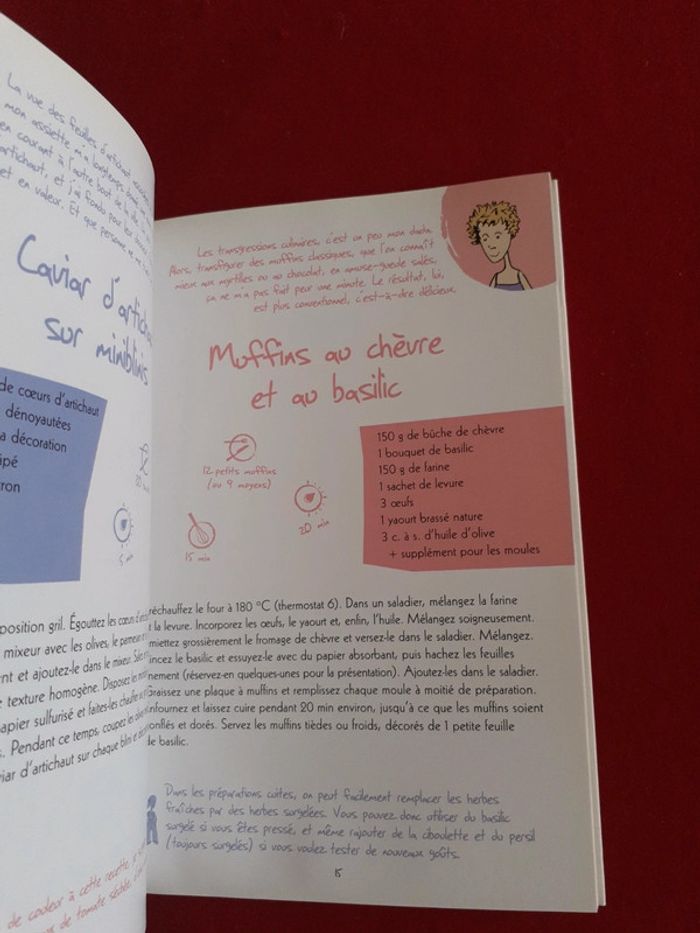 La vue des feuilles d'artichaut
mon assiette m'a longtemps
en courant à l'autre bout de la
artichaut, et j'ai fondu pour leur
et en valeur. Et que personne ne
Caviar d'artichau
sur miniblinis
de cœurs d'artichaut
dénoyautées
a décoration
ipé
ron
20 min
5 min
position gril. Égouttez les cœurs d'
mixeur avec les olives, le parmesan
nt et ajoutez-le dans le mixeur.
texture homogène. Disposez les
papier sulfurisé et faites-les chauffer
s. Pendant ce temps, coupez les
viar d'artichaut sur chaque blini et
de couleur à cette recette,
de tomate séchée.
Les transgressions culinaires, c'est un peu mon dada.
Alors, transfigurer des muffins classiques, que l'on connaît
mieux aux myrtilles ou au chocolat, en amuse-gueule salés,
ça ne m'a pas fait peur une minute. Le résultat, lui,
est plus conventionnel, c'est-à-dire délicieux.
Muffins au chèvre
et au basilic
12 petits muffins
(ou 9 moyens)
20 min
15 min
150 g de bûche de chèvre
1 bouquet de basilic
150 g de farine
1 sachet de levure
3 œufs
1 yaourt brassé nature
3 c. à s. d'huile d'olive
+ supplément pour les moules
réchauffez le four à 180 °C (thermostat 6). Dans un saladier, mélangez la farine
t la levure. Incorporez les œufs, le yaourt et, enfin, l'huile. Mélangez soigneusement.
miettez grossièrement le fromage de chèvre et versez-le dans le saladier. Mélangez.
incez le basilic et essuyez-le avec du papier absorbant, puis hachez les feuilles
nement (réservez-en quelques-unes pour la présentation). Ajoutez-les dans le saladier.
raissez une plaque à muffins et remplissez chaque moule à moitié de préparation.
nfournez et laissez cuire pendant 20 min environ, jusqu'à ce que les muffins soient
onflés et dorés. Servez les muffins tièdes ou froids, décorés de 1 petite feuille
de basilic.
Dans les préparations cuites, on peut facilement remplacer les herbes
fraîches par des herbes surgelées. Vous pouvez donc utiliser du basilic
surgelé si vous êtes pressé, et même rajouter de la ciboulette et du persil
(toujours surgelés) si vous voulez tester de nouveaux goûts.
15